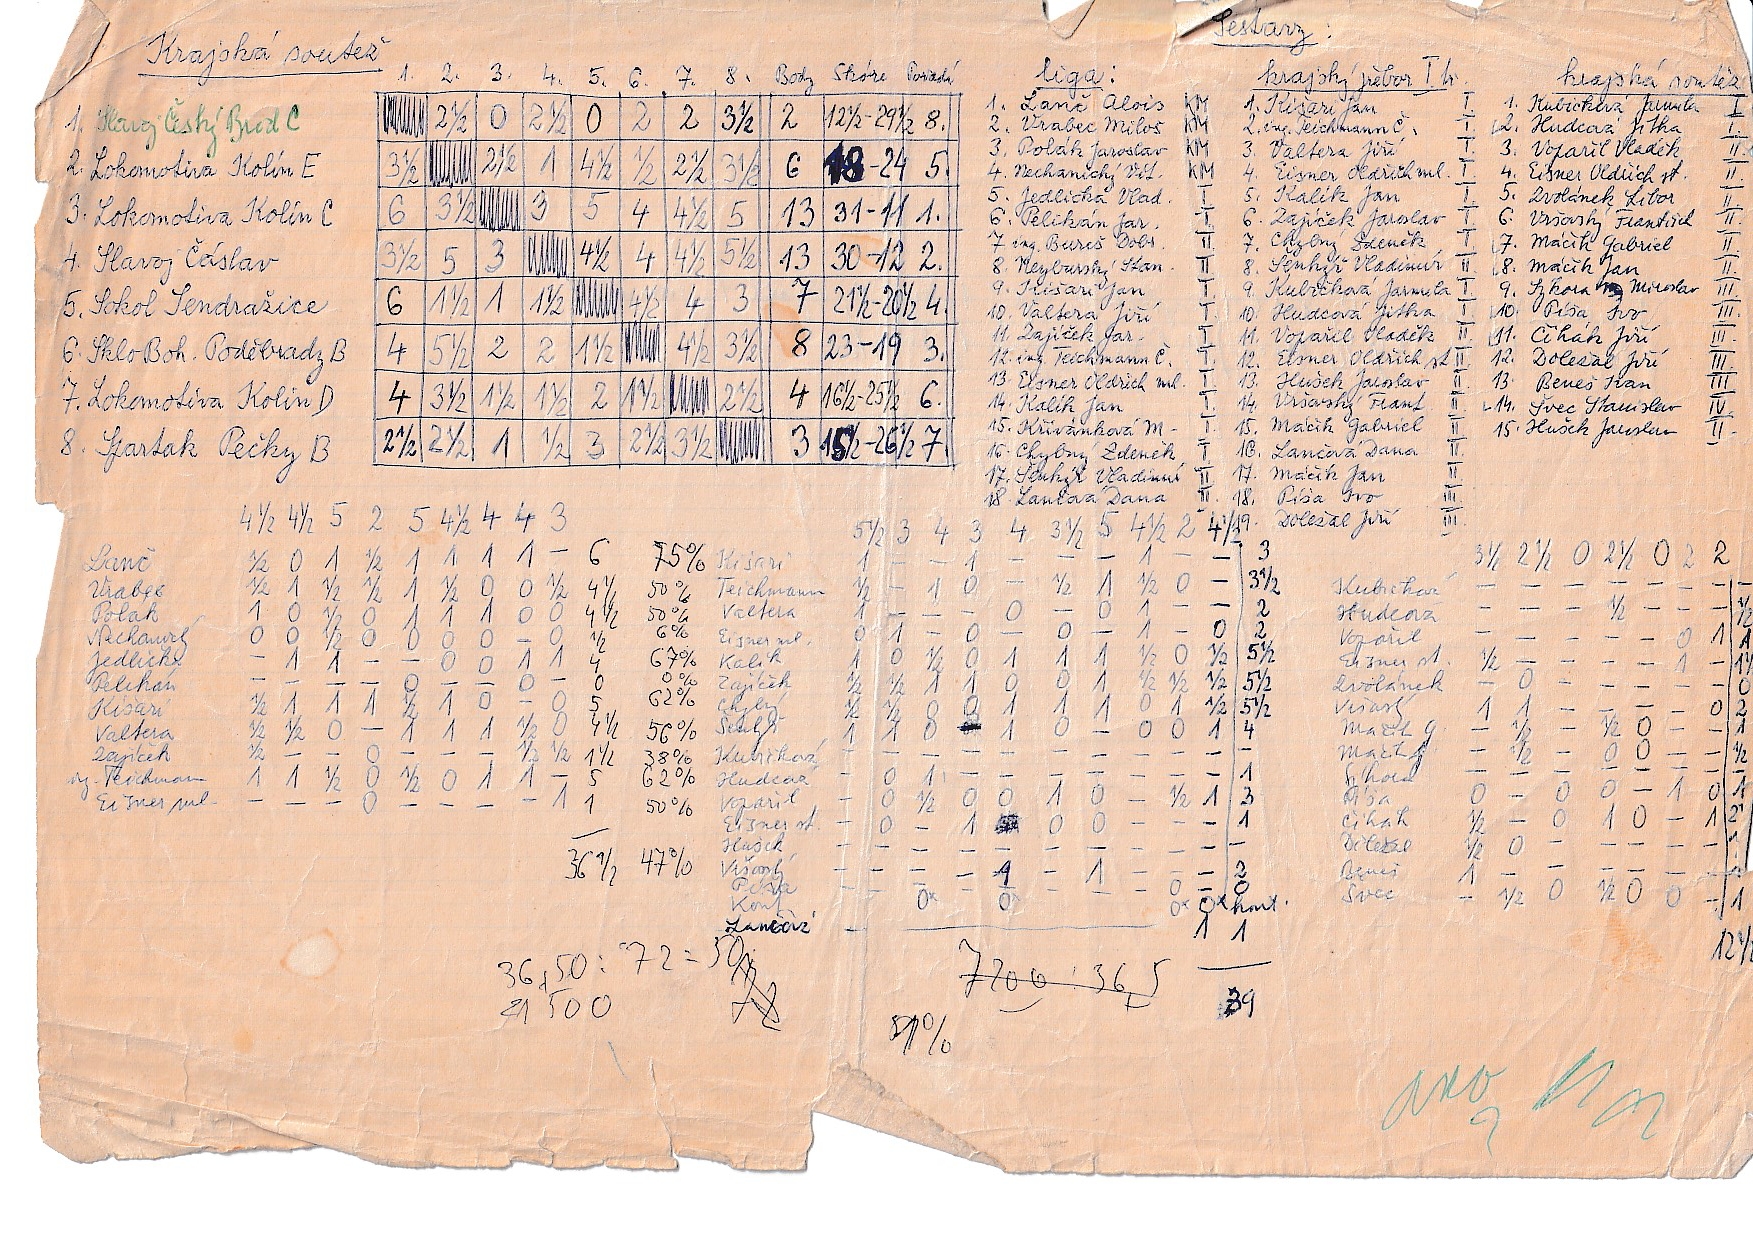 Krajská soutěž
1. 2. 3. 4. 5. 6. 7. 8. Body Skóre Pořadí
1. Slavoj Český Brod C 2½ 0 2½ 0 2 2 3½ 2 12½-29½ 8.
2. Lokomotiva Kolín E 3½ 2½ 1 4½ ½ 2½ 3½ 6 18-24 5.
3. Lokomotiva Kolín C 6 3½ 3 5 4 4½ 5 13 31-11 1.
4. Slavoj Čáslav 3½ 5 3 4½ 4 4½ 5½ 13 30-12 2.
5. Sokol Jendražice 6 1½ 1 1½ 4½ 4 3 7 21½-20½ 4.
6. Sklo Boh. Poděbrady B 4 5½ 2 2 1½ 4½ 3½ 8 23-19 3.
7. Lokomotiva Kolín D 4 3½ 1½ 1½ 2 1½ 2½ 4 16½-25½ 6.
8. Spartak Pečky B 2½ 2½ 1 ½ 3 2½ 3½ 3 15½-26½ 7
Sestavy:
liga:
1. Lanč Alois KM
2. Vrabec Miloš KM
3. Polák Jaroslav KM
4. Nechanický Vít. KM
5. Jedlička Vlad. I.
6. Pelikán Jar. I.
7 ing. Bureš Dobr. II.
8. Neyburský Stan. II.
9. Kišari Jan I.
10. Valtera Jiří I.
11. Zajíček Jar. I.
12. ing. Teichmann Č. I.
13. Eisner Oldrich ml. I.
14. Kalik Jan I.
15. Křivánková M. I.
16. Chybný Zdeněk I.
17. Šenkýř Vladimír II.
18 Lančová Dana II.
krajský přebor I. tř.
1. Kišari Jan I.
2. ing. Teichmann Č. I.
3. Valtera Jiří I.
4. Eisner Oldrich ml. I.
5. Kalik Jan I.
6. Zajíček Jaroslav I.
7. Chybný Zdeněk I.
8. Šenkýř Vladimír II
9. Kubíčková Jarmila I.
10. Hudcová Jitka I.
11. Vopařil Vladěk II
12. Eisner Oldrich st II
13. Hušek Jaroslav II
14. Vršovský Frant. II
15. Mačik Gabriel II
16. Lančová Dana II
17. Mačik Jan II
18. Píša Ivo III
19. Doležal Jiří III
krajská soutěž
1. Kubíčková Jarmila I
2. Hudcová Jitka I.
3. Vopařil Vladěk II.
4. Eisner Oldrich st. II.
5. Dvořánek Libor II.
6. Vršovský František II.
7. Mačik Gabriel II.
8. Mačik Jan II.
9. Sýkora Miroslav III.
10. Píša Ivo III.
11. Čihák Jiří III.
12. Doležal Jiří III
13. Beneš Ivan III
14. Švec Stanislav IV.
15. Hušek Jaroslav II.
4½ 4½ 5 2 5 4½ 4 4 3
Lanč ½ 0 1 ½ 1 1 1 1 - 6 75%
Vrabec ½ 1 ½ ½ 1 ½ 0 0 ½ 4½ 50%
Polák 1 0 ½ 0 1 1 1 0 0 4½ 50%
Nechanický 0 0 ½ 0 0 0 0 - 0 ½ 6%
Jedlička - 1 1 - - 0 0 1 1 4 67%
Pelikán - - - - 0 - - - - 0 0%
Kišari ½ 1 1 1 ½ 1 0 - 0 5 62%
Valtera ½ ½ 0 - 1 1 1 ½ 0 4½ 56%
Zajíček ½ - - 0 - - - ½ ½ 1½ 38%
ing. Teichmann 1 1 ½ 0 ½ 0 1 1 - 5 62%
Eisner ml. - - - 0 - - - - 1 1 50%
36½ 47%
36,50 : 72 = 50
500
5½ 3 4 3 4 3½ 5 4½ 2 4½
Kišari 1 - - 1 - - - 1 - - 3
Teichmann ½ - 1 0 - ½ 1 ½ 0 - 3½
Valtera 1 - - - 0 - 0 1 - - 2
Eisner ml. 0 1 - 0 - 0 - 1 - 0 2
Kalik 1 0 ½ 0 1 1 1 ½ 0 ½ 5½
Zajíček ½ ½ 1 1 0 0 1 ½ ½ ½ 5½
Chybný ½ ½ 0 0 1 1 1 0 1 ½ 5½
Šenkýř 1 1 0 - 1 0 - 0 0 1 4
Kubíčková
Hudcová - 0 1 - - - - - - - 1
Vopařil - 0 ½ 0 0 1 0 - ½ 1 3
Eisner st. - 0 - 1 0 0 - - - 1
Hušek
Vršovský 1 - 1 2
Píša 0 - 0
Kont. 0* 0* 0* 0* kont.
Lančová - 1 1
39
7200 : 36,5
51%
3½ 2½ 0 2½ 0 2 2
Kubíčková - - - - - - - -
Hudcová - - - ½ - - - ½
Vopařil - - - - - 0 1 1
Eisner st. ½ - - - - 1 - 1½
Dvořánek - 0 - - - - - 0
Vršovský 1 1 - - - - 0 2
Mačik G. - ½ - ½ 0 - - 1
Mačik J. - ½ - 0 0 - - ½
Sýkora
Píša 0 - 0 0 - 1 0 1
Čihák ½ - 0 1 0 - 1 2
Doležal ½ 0 - - - - -
Beneš 1 - - - - - -
Švec - ½ 0 ½ 0 0 - 1
12½